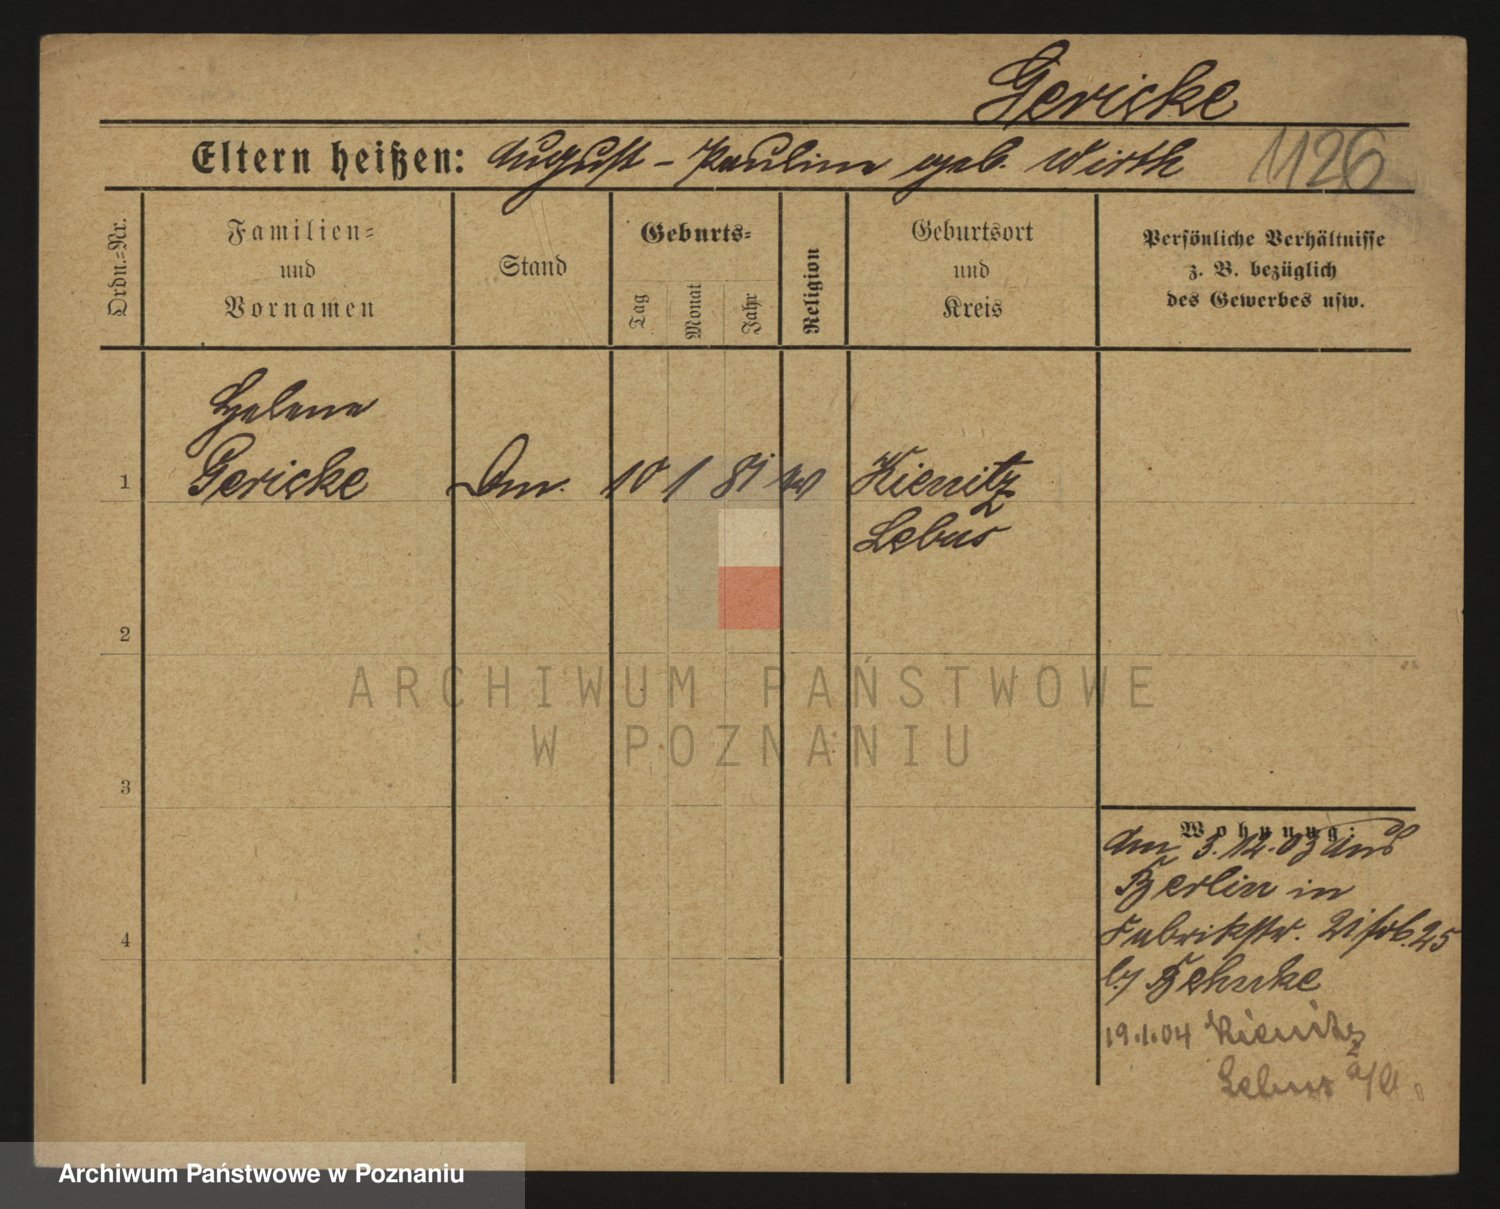 Gericke
Eltern heißen: August - Pauline geb. Wirth 1126
Ordn.-Nr.
Familien-
und
Vornamen
Stand
Geburts-
Tag
Monat
Jahr
Religion
Geburtsort
und
Kreis
Persönliche Verhältnisse
z. B. bezüglich
des Gewerbes usw.
Helene
1 Gericke 10 1 81 Kienitz
Lebus
2
ARCHIWUM PAŃSTWOWE
W POZNANIU
3
Wohnung:
am 3.12.03 aus
Berlin in
4 Fabrikstr. 25
b/ Behnke
19.1.04 Kienitz
Lebus a/O.
Archiwum Państwowe w Poznaniu